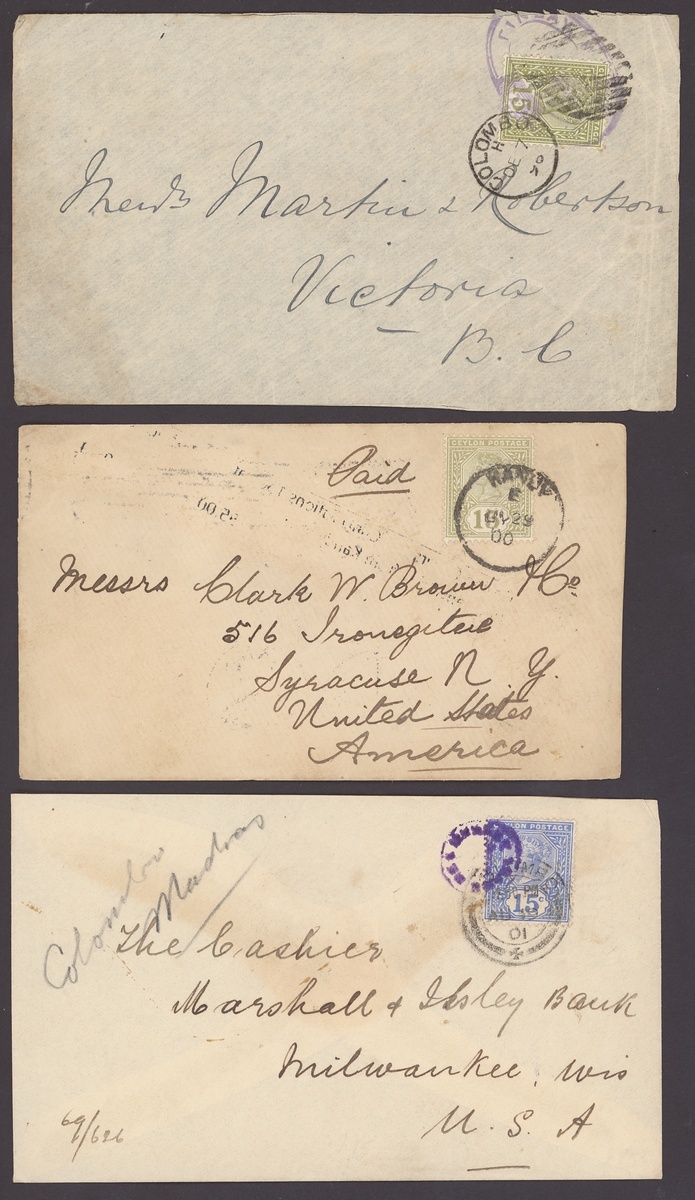 FINLAY
15
COLOMBO
H
DE 7
Messrs Martin & Robertson
Victoria
B. C
Paid
CEYLON POSTAGE
KANDY
E
MY 28
00
Messrs Clark W. Brown & Co
516
Syracuse N. Y.
United States
America
Colombo
Madras
CEYLON POSTAGE
15c
PM
01
The Cashier
Marshall & Ilsley Bank
Milwaukee, Wis
U. S. A
69/626